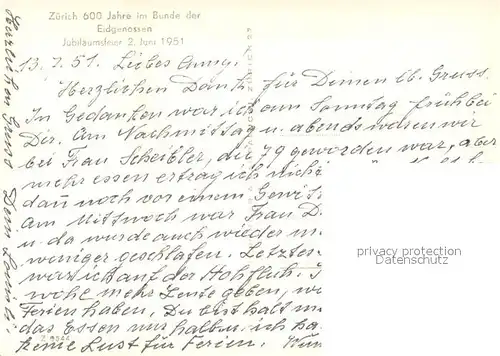 Zürich 600 Jahre im Bunde der
Eidgenossen
Jubiläumsfeier 2. Juni 1951
13.7.51. Liebes Anny.
Herzlichen Dank für Deinen lb. Gruss.
In Gedanken war ich am Sonntag früh bei
Dir. Am Nachmittag u. abends waren wir
bei Frau Scheibler, die 79 geworden war, aber
mehr essen ertrag ich nicht
dau noch vor einem Gewi
Am Mittwoch war Frau D
u. da wurde auch wieder m
weniger geschlafen. Letzten
war ich auf der Hohfluh.
wohl mehr Leute geben, w
Ferien haben. Du
das Essen nur halben. ich ha
keine Lust für Ferien.
Herzlichen Gruss Dein
privacy protection
Datenschutz